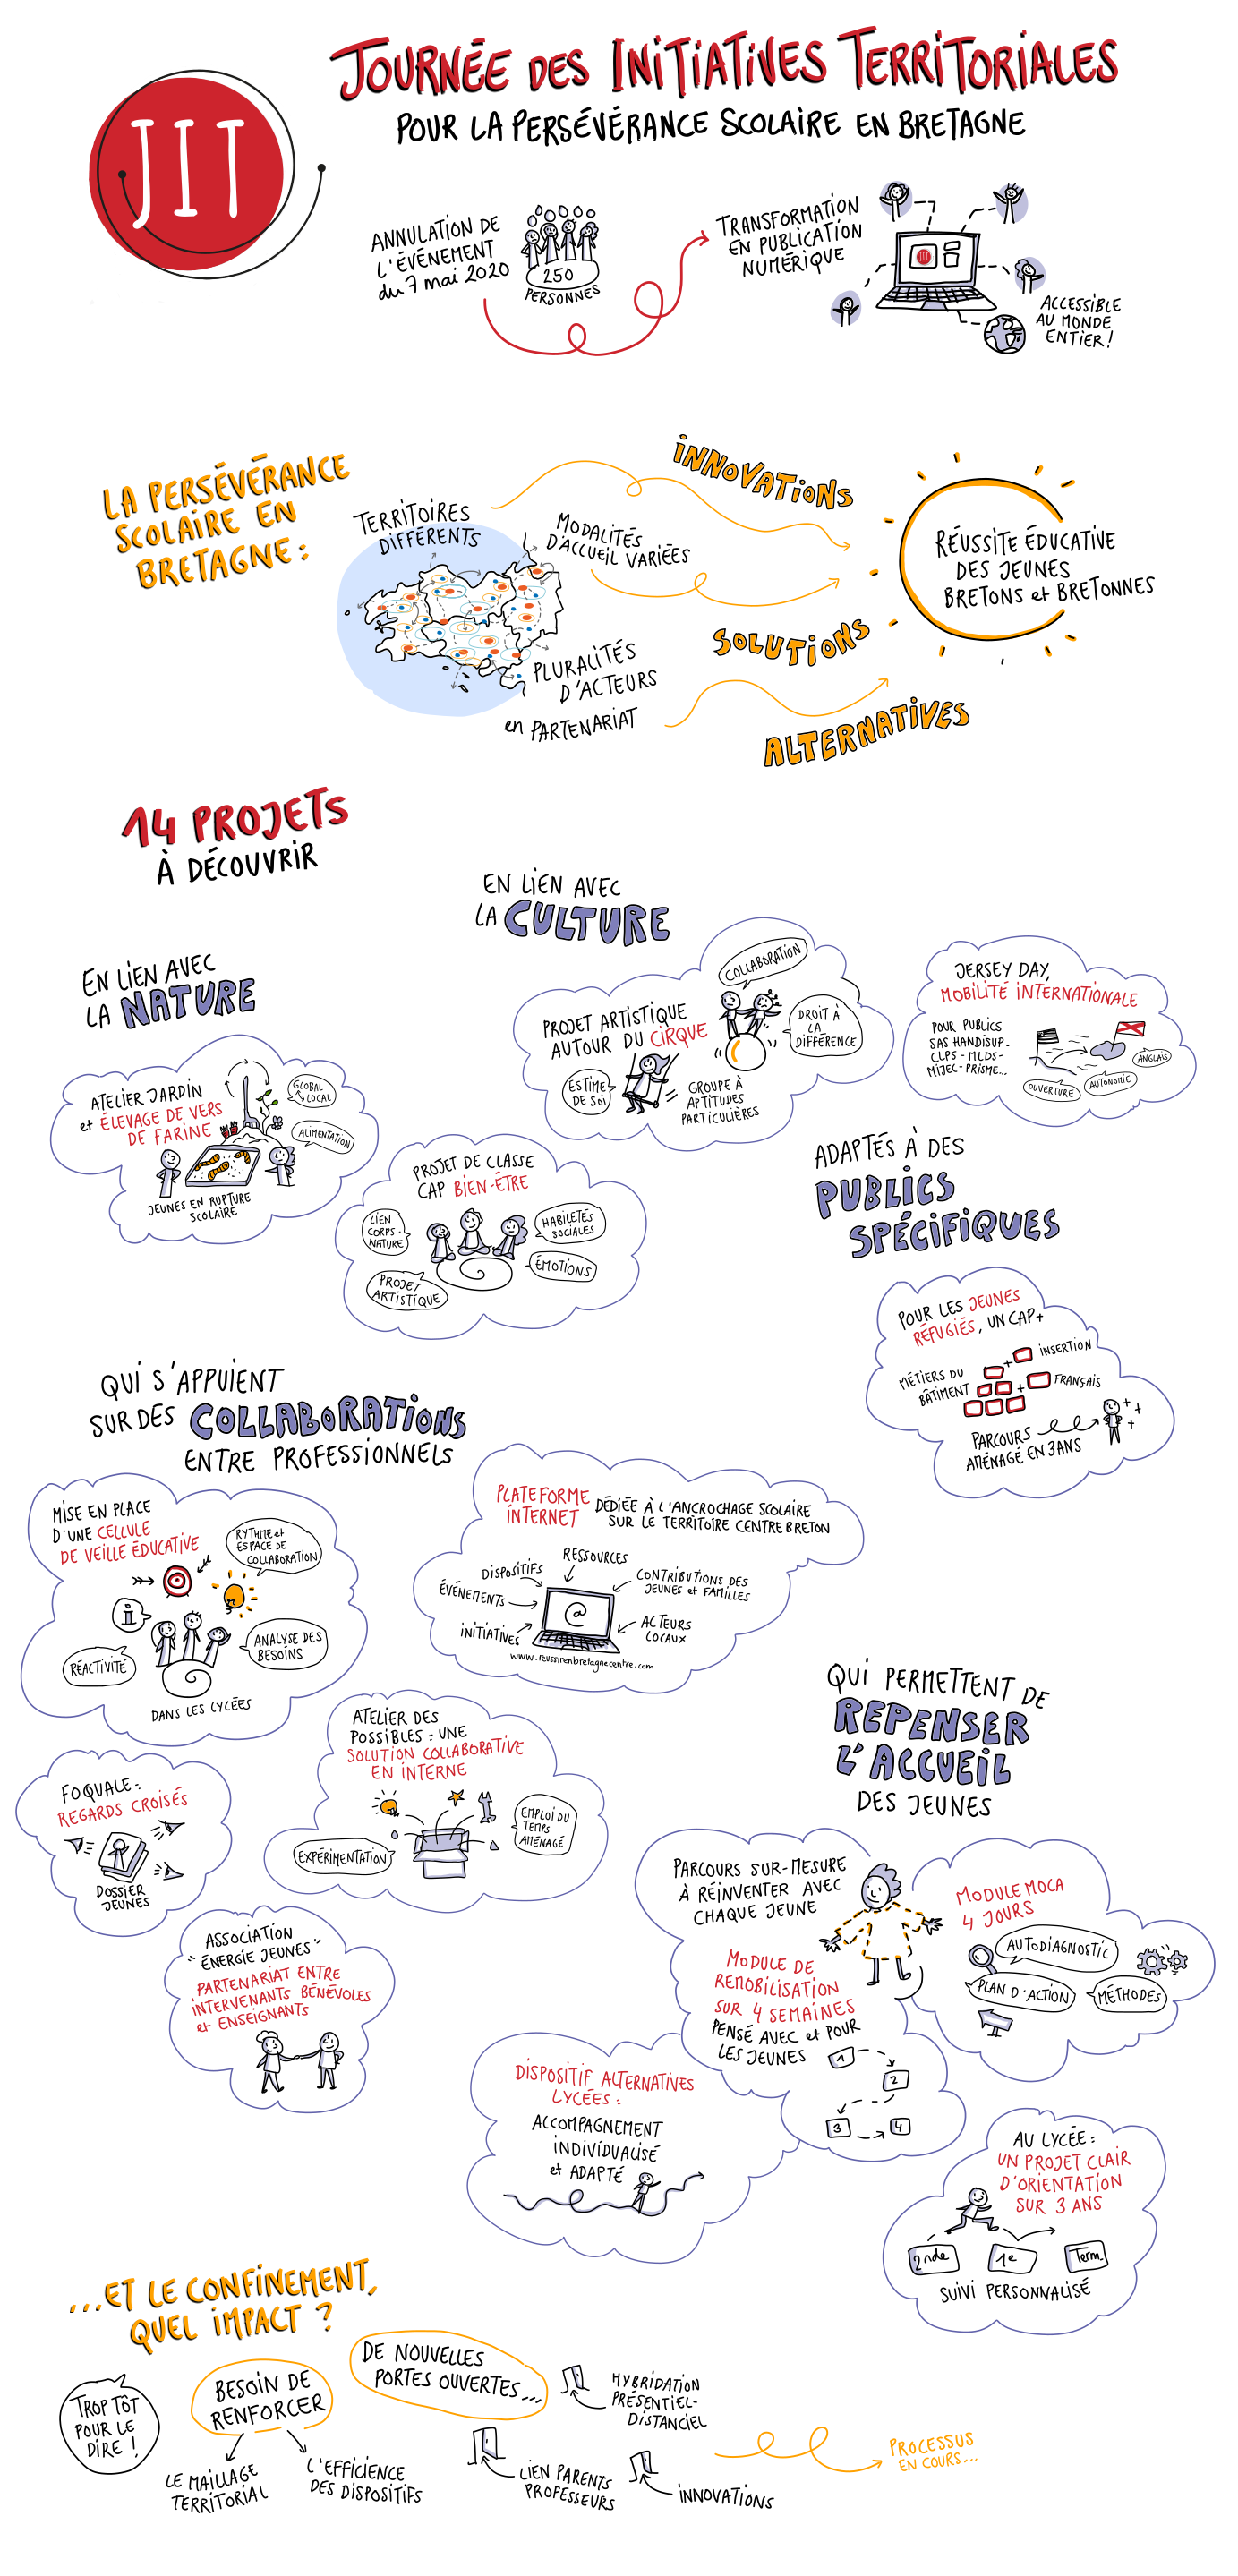 JIT
JOURNÉE DES INITIATIVES TERRITORIALES
POUR LA PERSÉVÉRANCE SCOLAIRE EN BRETAGNE
ANNULATION DE
L'ÉVÉNEMENT
du 7 mai 2020
250
PERSONNES
TRANSFORMATION
EN PUBLICATION
NUMÉRIQUE
ACCESSIBLE
AU MONDE
ENTIER !
LA PERSÉVÉRANCE
SCOLAIRE EN
BRETAGNE :
TERRITOIRES
DIFFÉRENTS
MODALITÉS
D'ACCUEIL VARIÉES
PLURALITÉS
D'ACTEURS
en PARTENARIAT
INNOVATIONS
SOLUTIONS
ALTERNATIVES
RÉUSSITE ÉDUCATIVE
DES JEUNES
BRETONS et BRETONNES
14 PROJETS
À DÉCOUVRIR
EN LIEN AVEC
LA NATURE
ATELIER JARDIN
et ÉLEVAGE DE VERS
DE FARINE
GLOBAL
LOCAL
ALIMENTATION
JEUNES EN RUPTURE
SCOLAIRE
EN LIEN AVEC
LA CULTURE
PROJET ARTISTIQUE
AUTOUR DU CIRQUE
COLLABORATION
DROIT À
LA
DIFFÉRENCE
ESTIME
DE SOI
GROUPE À
APTITUDES
PARTICULIÈRES
PROJET DE CLASSE
CAP BIEN-ÊTRE
LIEN
CORPS-
NATURE
HABILETÉS
SOCIALES
ÉMOTIONS
PROJET
ARTISTIQUE
JERSEY DAY,
MOBILITÉ INTERNATIONALE
POUR PUBLICS
SAS HANDISUP-
CLPS - MLDS-
MIJEC-PRISME...
OUVERTURE
AUTONOMIE
ANGLAIS
ADAPTÉS À DES
PUBLICS
SPÉCIFIQUES
POUR LES JEUNES
RÉFUGIÉS, UN CAP+
MÉTIERS DU
BÂTIMENT
+ INSERTION
+ FRANÇAIS
PARCOURS
AMÉNAGÉ EN 3 ANS
QUI S'APPUIENT
SUR DES COLLABORATIONS
ENTRE PROFESSIONNELS
MISE EN PLACE
D'UNE CELLULE
DE VEILLE ÉDUCATIVE
RYTHME et
ESPACE DE
COLLABORATION
i
RÉACTIVITÉ
ANALYSE DES
BESOINS
DANS LES LYCÉES
PLATEFORME
INTERNET
DÉDIÉE À L'ANCROCHAGE SCOLAIRE
SUR LE TERRITOIRE CENTRE BRETON
ÉVÉNEMENTS
DISPOSITIFS
RESSOURCES
CONTRIBUTIONS DES
JEUNES et FAMILLES
INITIATIVES
@
ACTEURS
LOCAUX
www.reussirenbretagnecentre.com
FOQUALE :
REGARDS CROISÉS
DOSSIER
JEUNES
ATELIER DES
POSSIBLES : UNE
SOLUTION COLLABORATIVE
EN INTERNE
EXPÉRIMENTATION
EMPLOI DU
TEMPS
AMÉNAGÉ
ASSOCIATION
"ÉNERGIE JEUNES"
PARTENARIAT ENTRE
INTERVENANTS BÉNÉVOLES
et ENSEIGNANTS
QUI PERMETTENT DE
REPENSER
L'ACCUEIL
DES JEUNES
PARCOURS SUR-MESURE
À RÉINVENTER AVEC
CHAQUE JEUNE
MODULE DE
REMOBILISATION
SUR 4 SEMAINES
PENSÉ AVEC et POUR
LES JEUNES
1
2
3
4
MODULE MOCA
4 JOURS
AUTODIAGNOSTIC
PLAN D'ACTION
MÉTHODES
DISPOSITIF ALTERNATIVES
LYCÉES :
ACCOMPAGNEMENT
INDIVIDUALISÉ
et ADAPTÉ
AU LYCÉE :
UN PROJET CLAIR
D'ORIENTATION
SUR 3 ANS
2nde
1e
Term.
SUIVI PERSONNALISÉ
...ET LE CONFINEMENT,
QUEL IMPACT ?
TROP TÔT
POUR LE
DIRE !
BESOIN DE
RENFORCER
LE MAILLAGE
TERRITORIAL
L'EFFICIENCE
DES DISPOSITIFS
DE NOUVELLES
PORTES OUVERTES...
HYBRIDATION
PRÉSENTIEL-
DISTANCIEL
LIEN PARENTS
PROFESSEURS
INNOVATIONS
PROCESSUS
EN COURS...